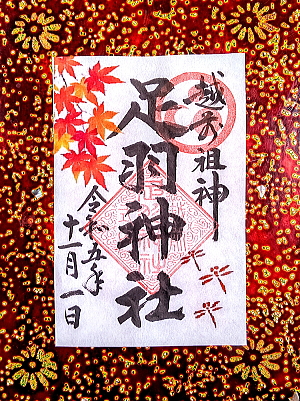 越前祖神
足羽神社
令和五年
十一月一日